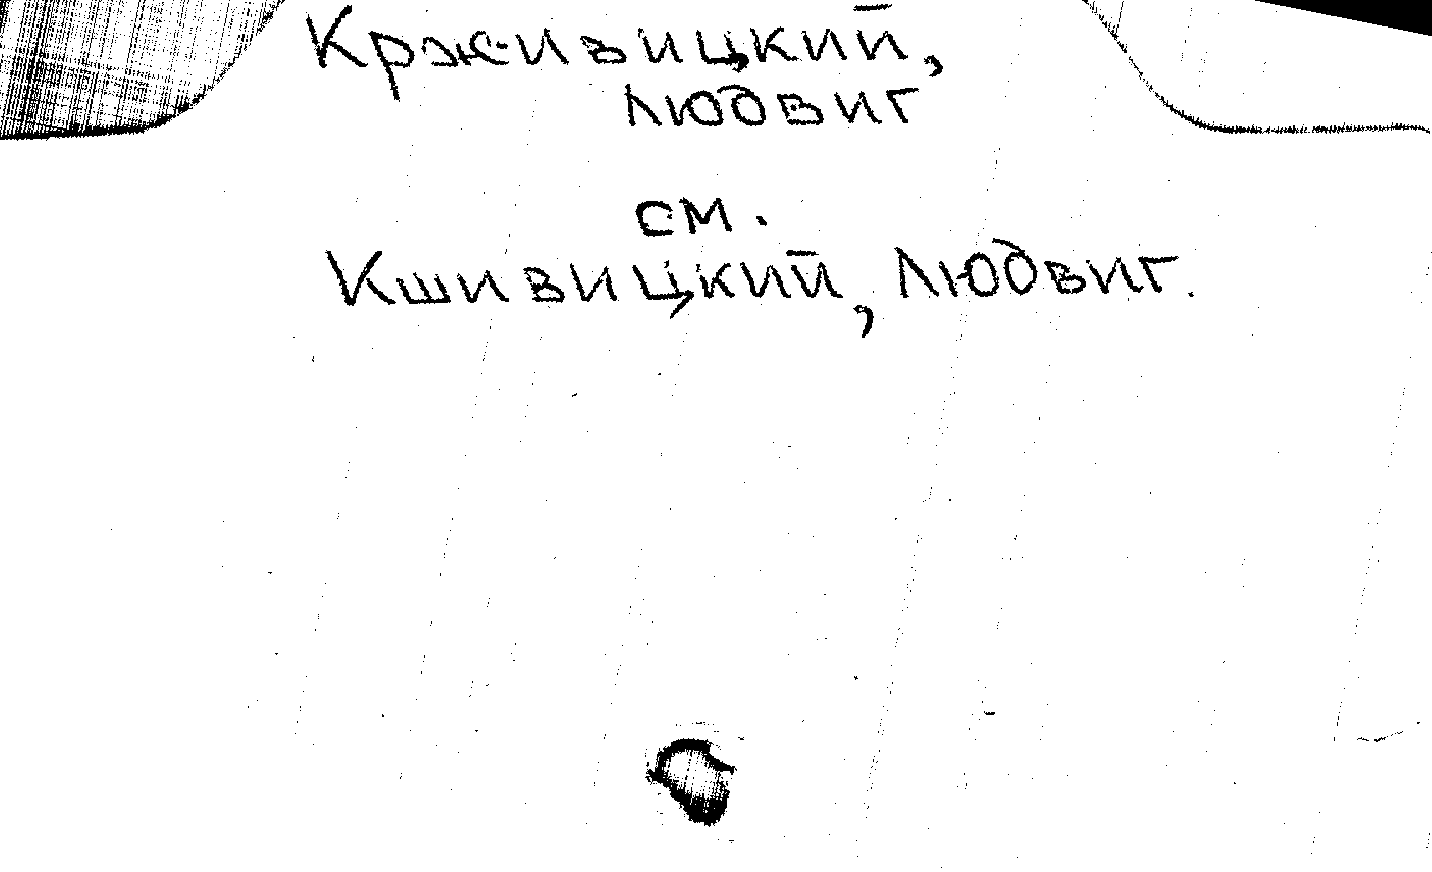 Крживицкий,
Людвиг
см.
Кшивицкий, Людвиг.